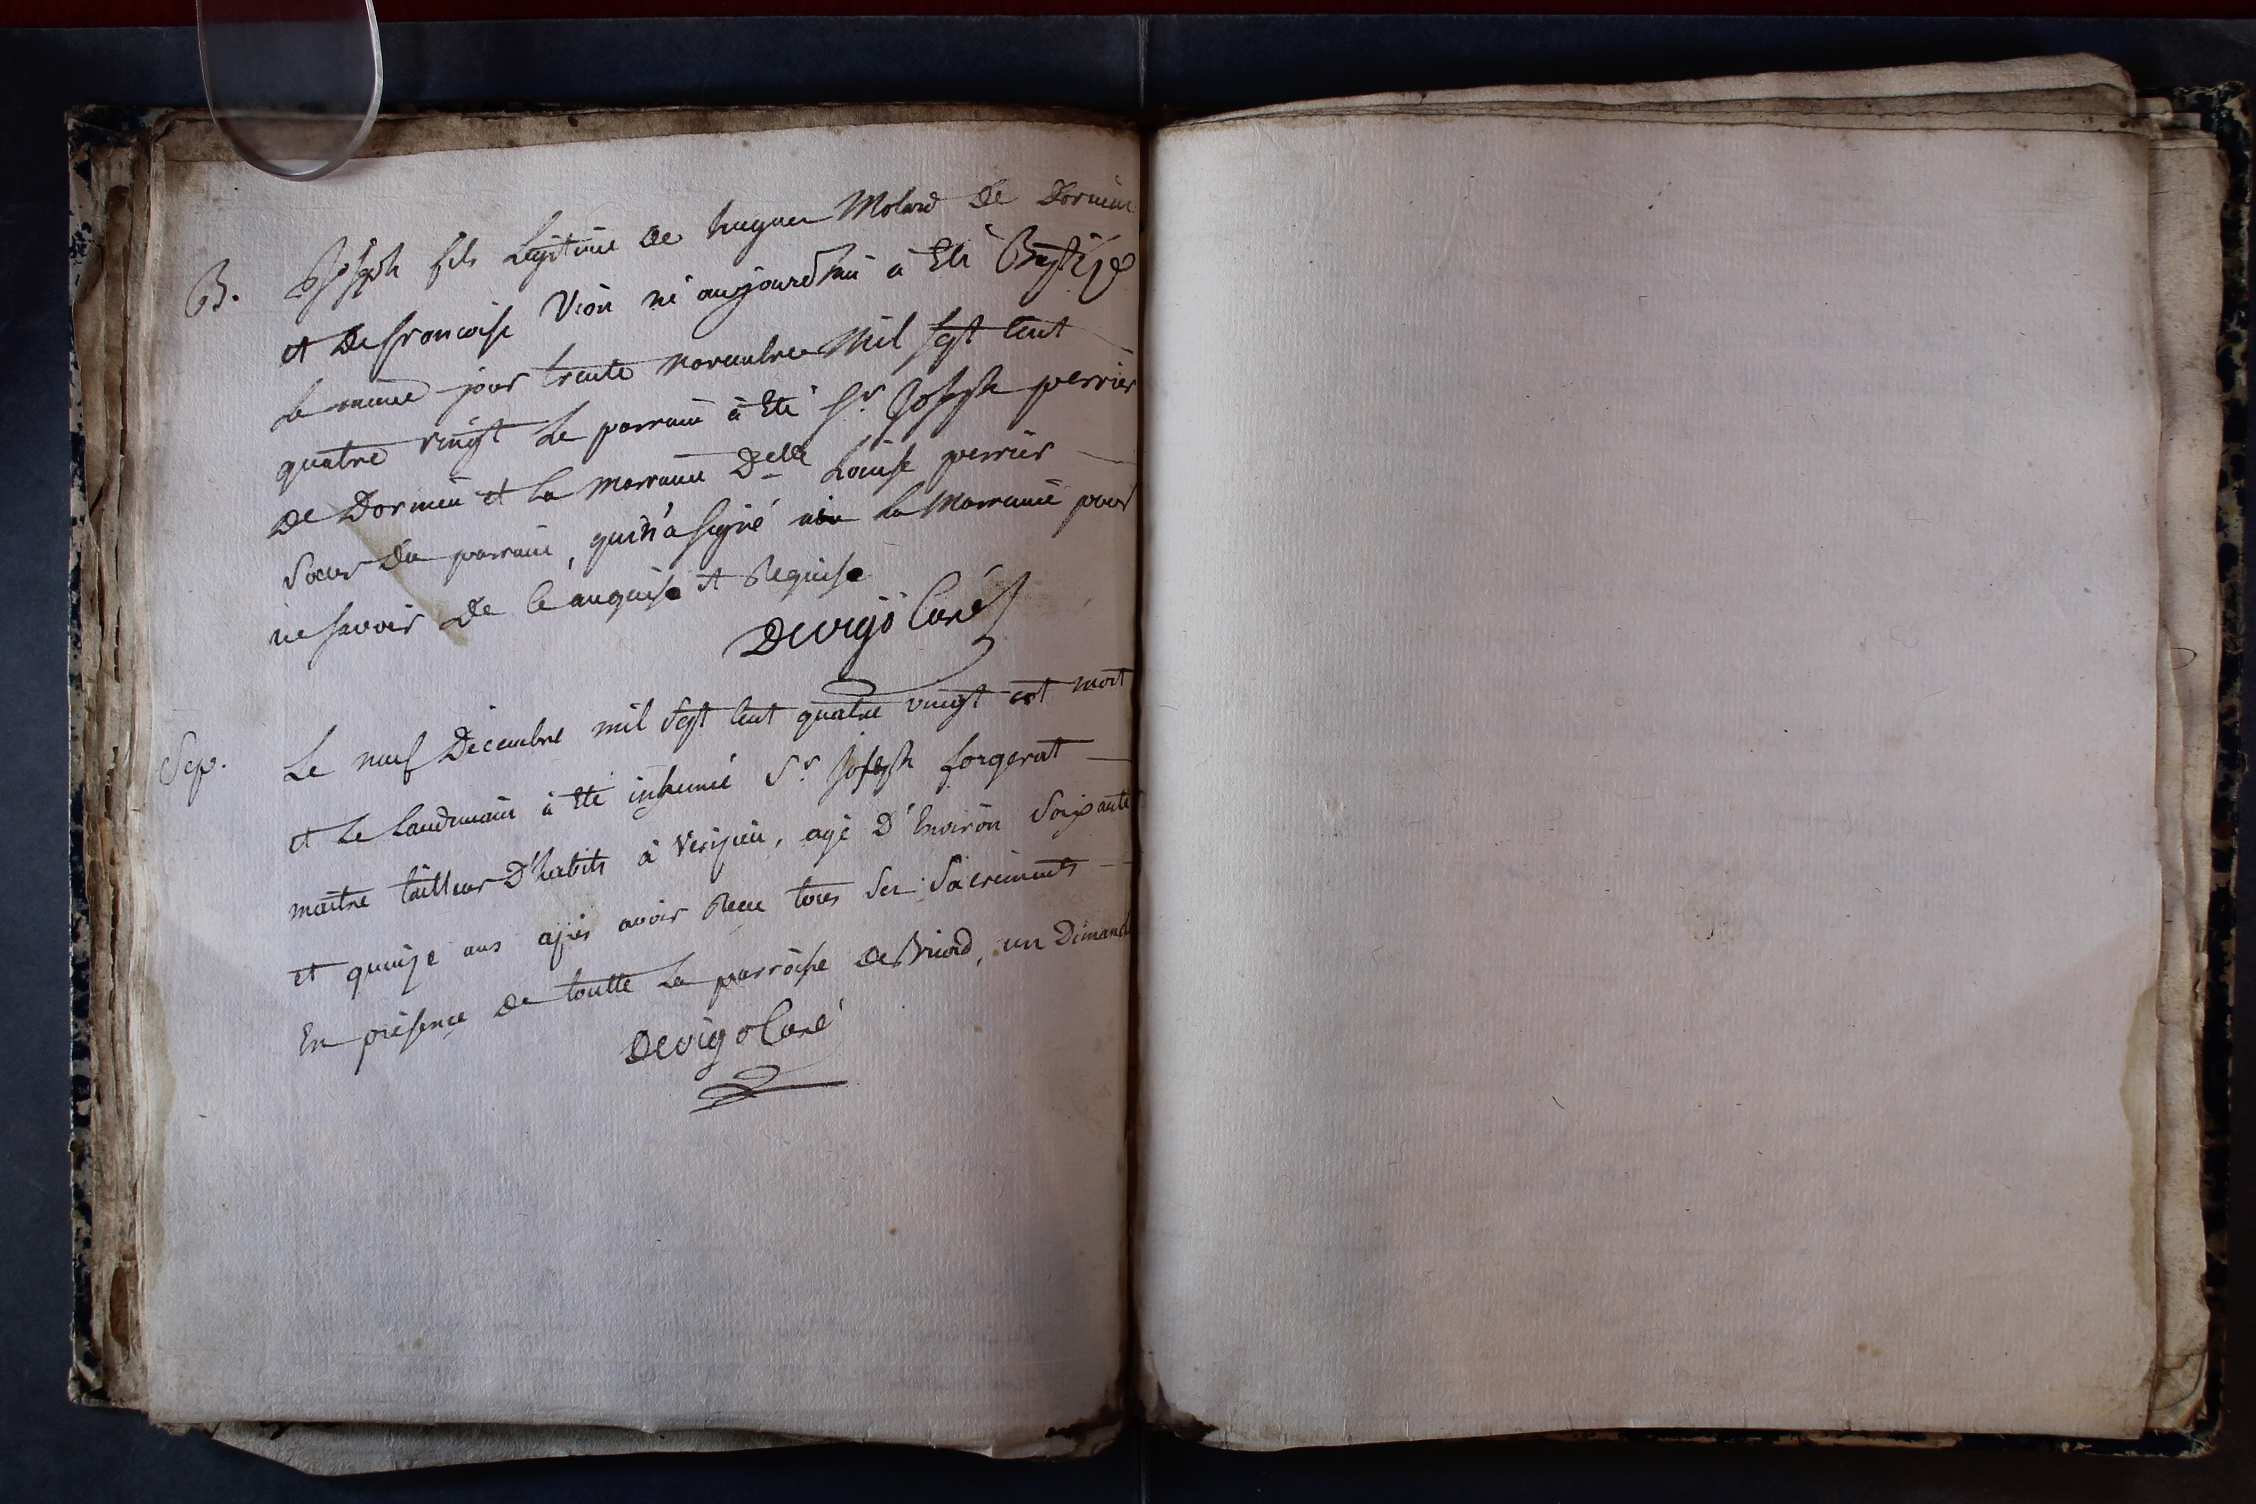 B. Joseph fils Legitime De hugues Molard De Dornieu
et De francoise Vion né aujourd'hui à Eté Baptizé
le meme jour trente novembre Mil sept Cent
quatre vingt Le parrain à Eté Sr. Joseph perrier
De Dornieu et la marraine Delle Louise perrier
soeur Du parrain, qui n'a signé ni la Marraine pour
ne savoir De ce enquise et Requise
Devigo Curé
Sep. Le neuf Décembre mil sept Cent quatre vingt est mort
et Le Landemain à Eté inhumé Sr. Joseph forgerat
maitre tailleur D'habits à Verijeu, agé D'Environ soixante
et quinze ans après avoir Reçu tous ses Sacrements
En présence De toutte La parroisse De Briord, un Dimanche
Devigo Curé